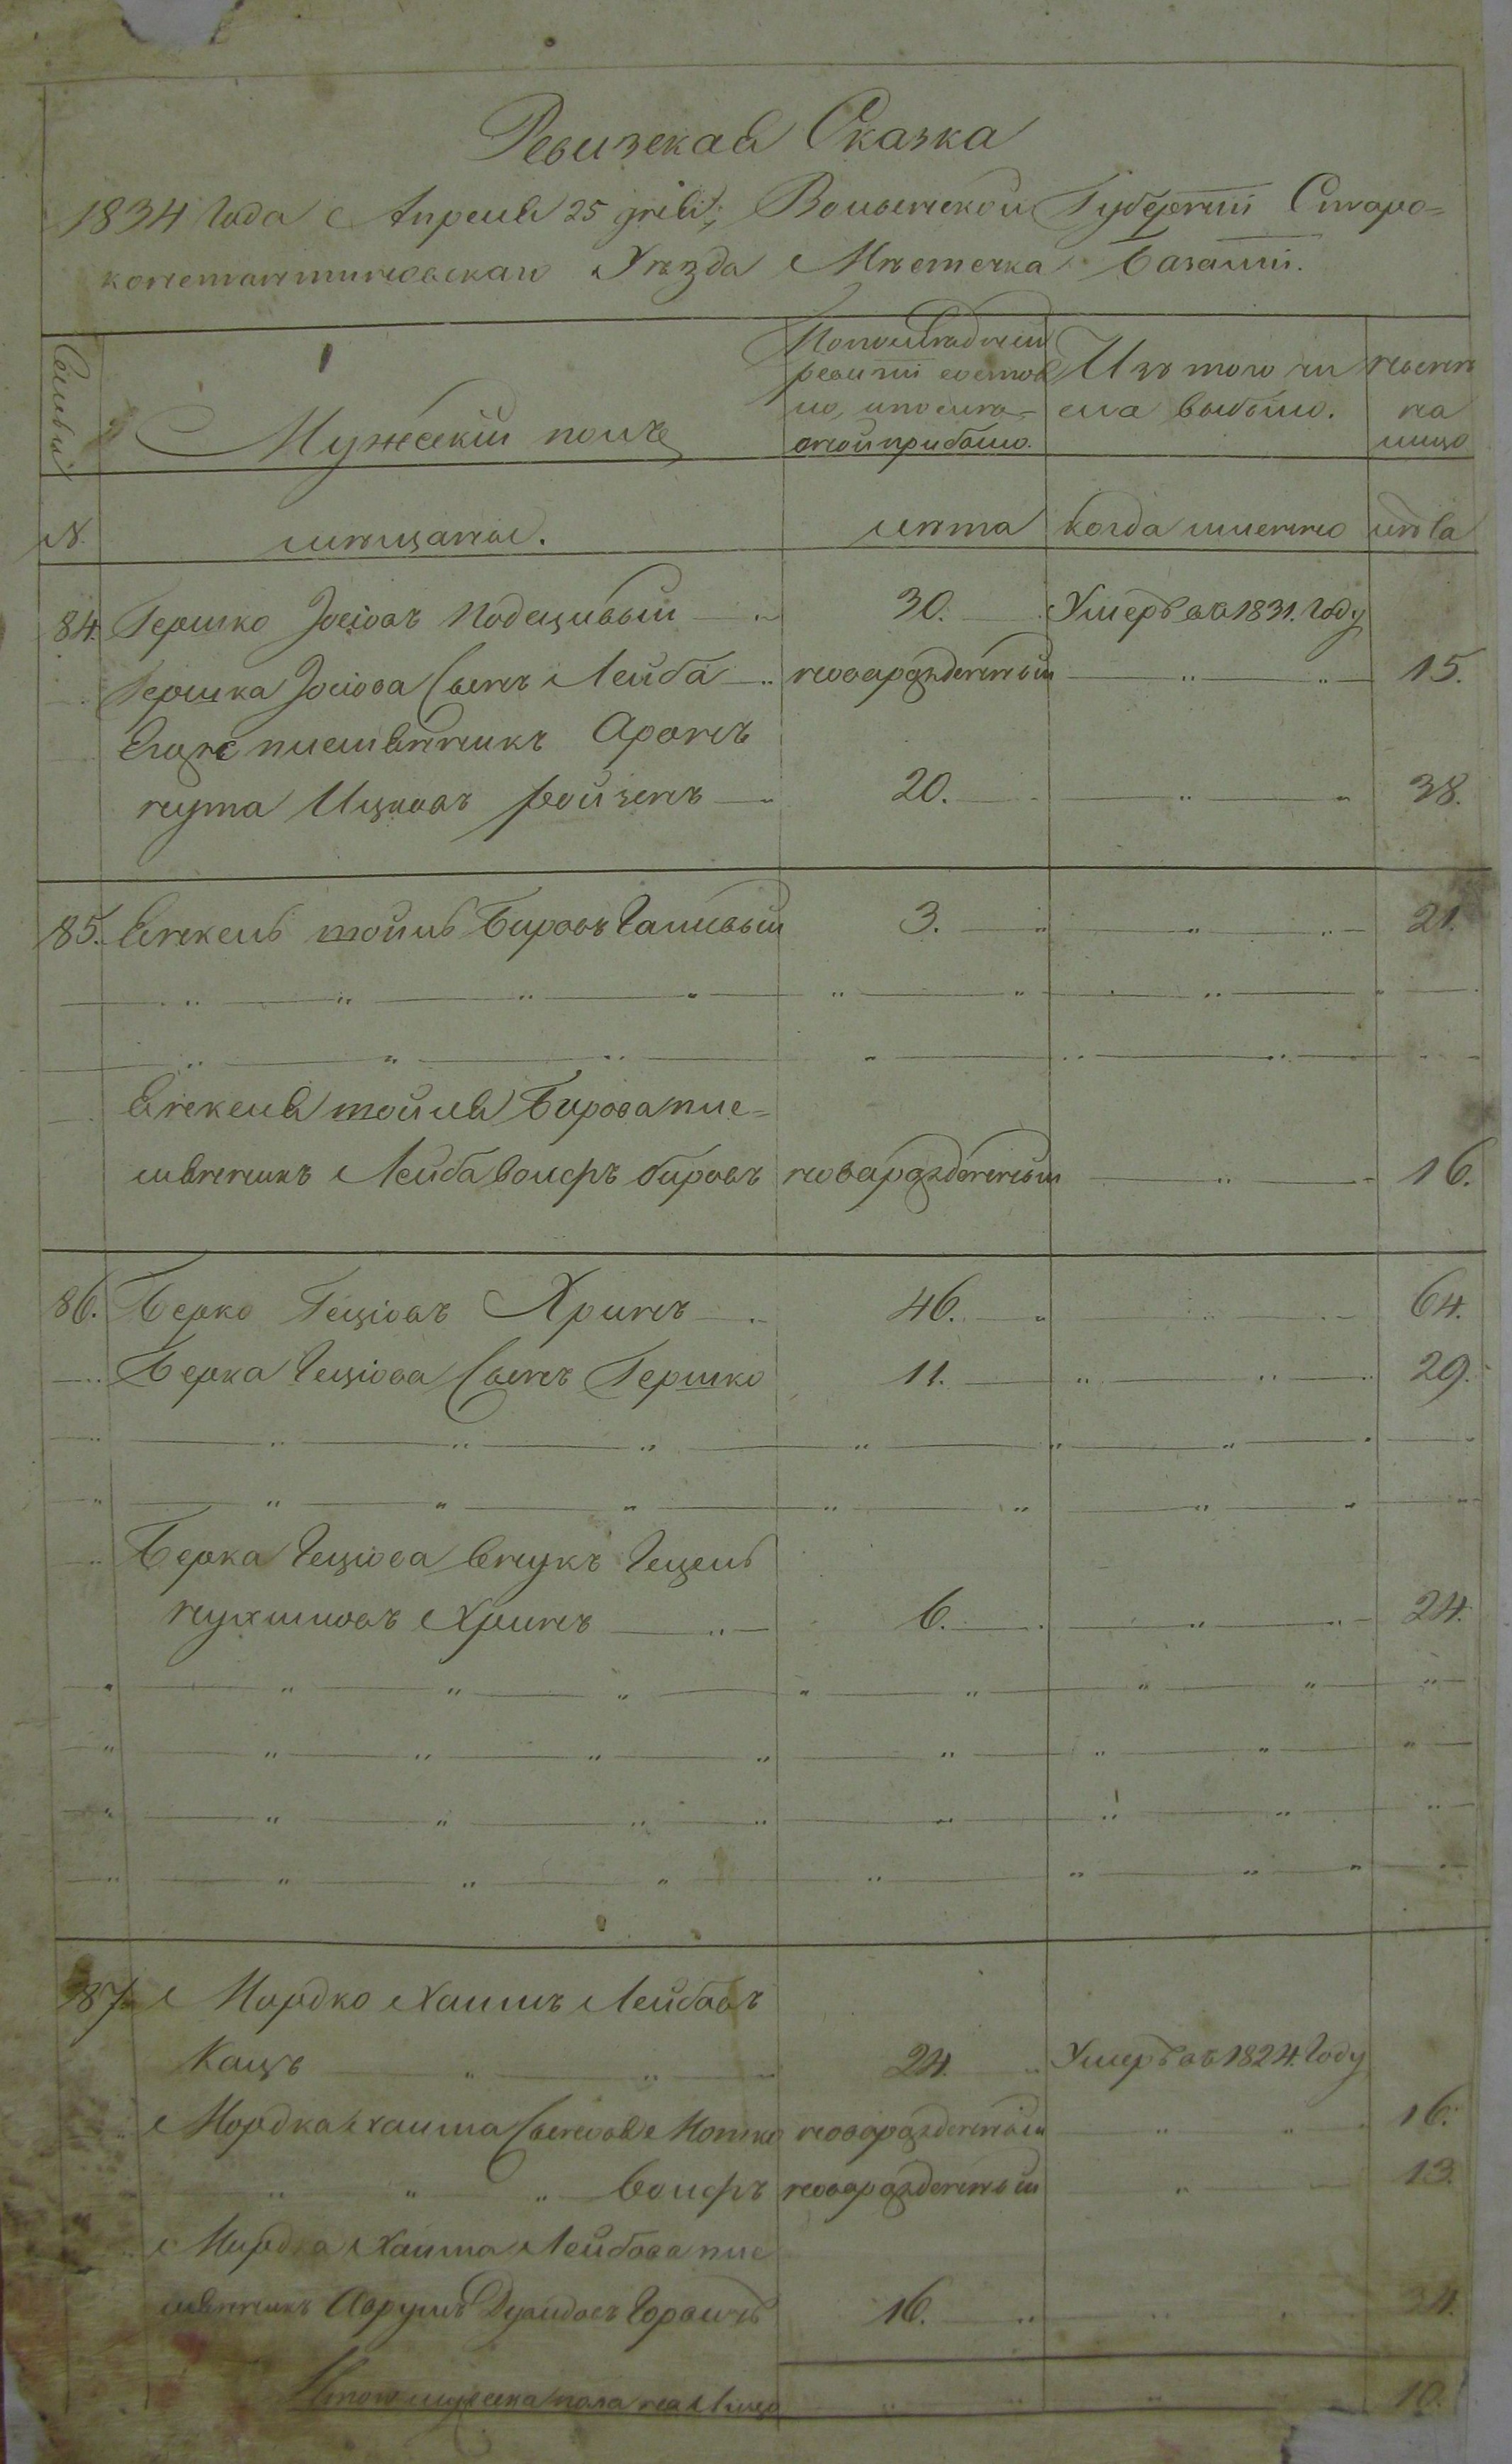 Ревизская Сказка
1834 Года Апреля 25 дня; Волынской Губерніи Старо=
константиновскаго Уѣзда Мѣстечка Базаліи.
Семьи
Мужескій полъ
По последней
ревизіи состоя
ло, и после
оной прибыло.
Изъ того чи
сла выбыло.
нынѣ
на
лицо
№.
мѣщане.
лѣта
когда именно
лѣта
84. Гершко Іосіовъ Подецивый 30. Умеръ въ 1831. Году
Гершка Іосіова Сынъ Лейба новорожденный 15.
Егоже племянникъ Аронъ
нута Ицковъ ройзенъ 20. 38.
85. Енкель мойль Бировъ Галивый 3. 21.
Енкеля мойля Бирова пле=
мянникъ Лейба Волфъ бировъ новорожденный 16.
86. Берко Геціовъ Хринъ 46. 64.
Берка Геціова Сынъ Гершко 11. 29.
Берка Геціова Внукъ Гецель
нухимовъ Хринъ 6. 24.
87. Мордко Хаимъ Лейбовъ
Кацъ 24. Умеръ въ 1824. Году
Мордка Хаима Сыновья Мошко новорожденный 16.
Волфъ новорожденный 13.
Мордка Хаима Лейбова пле
мянникъ Аврумъ Горвичъ 16. 34.
Итого мужеска пола на лицо 10.